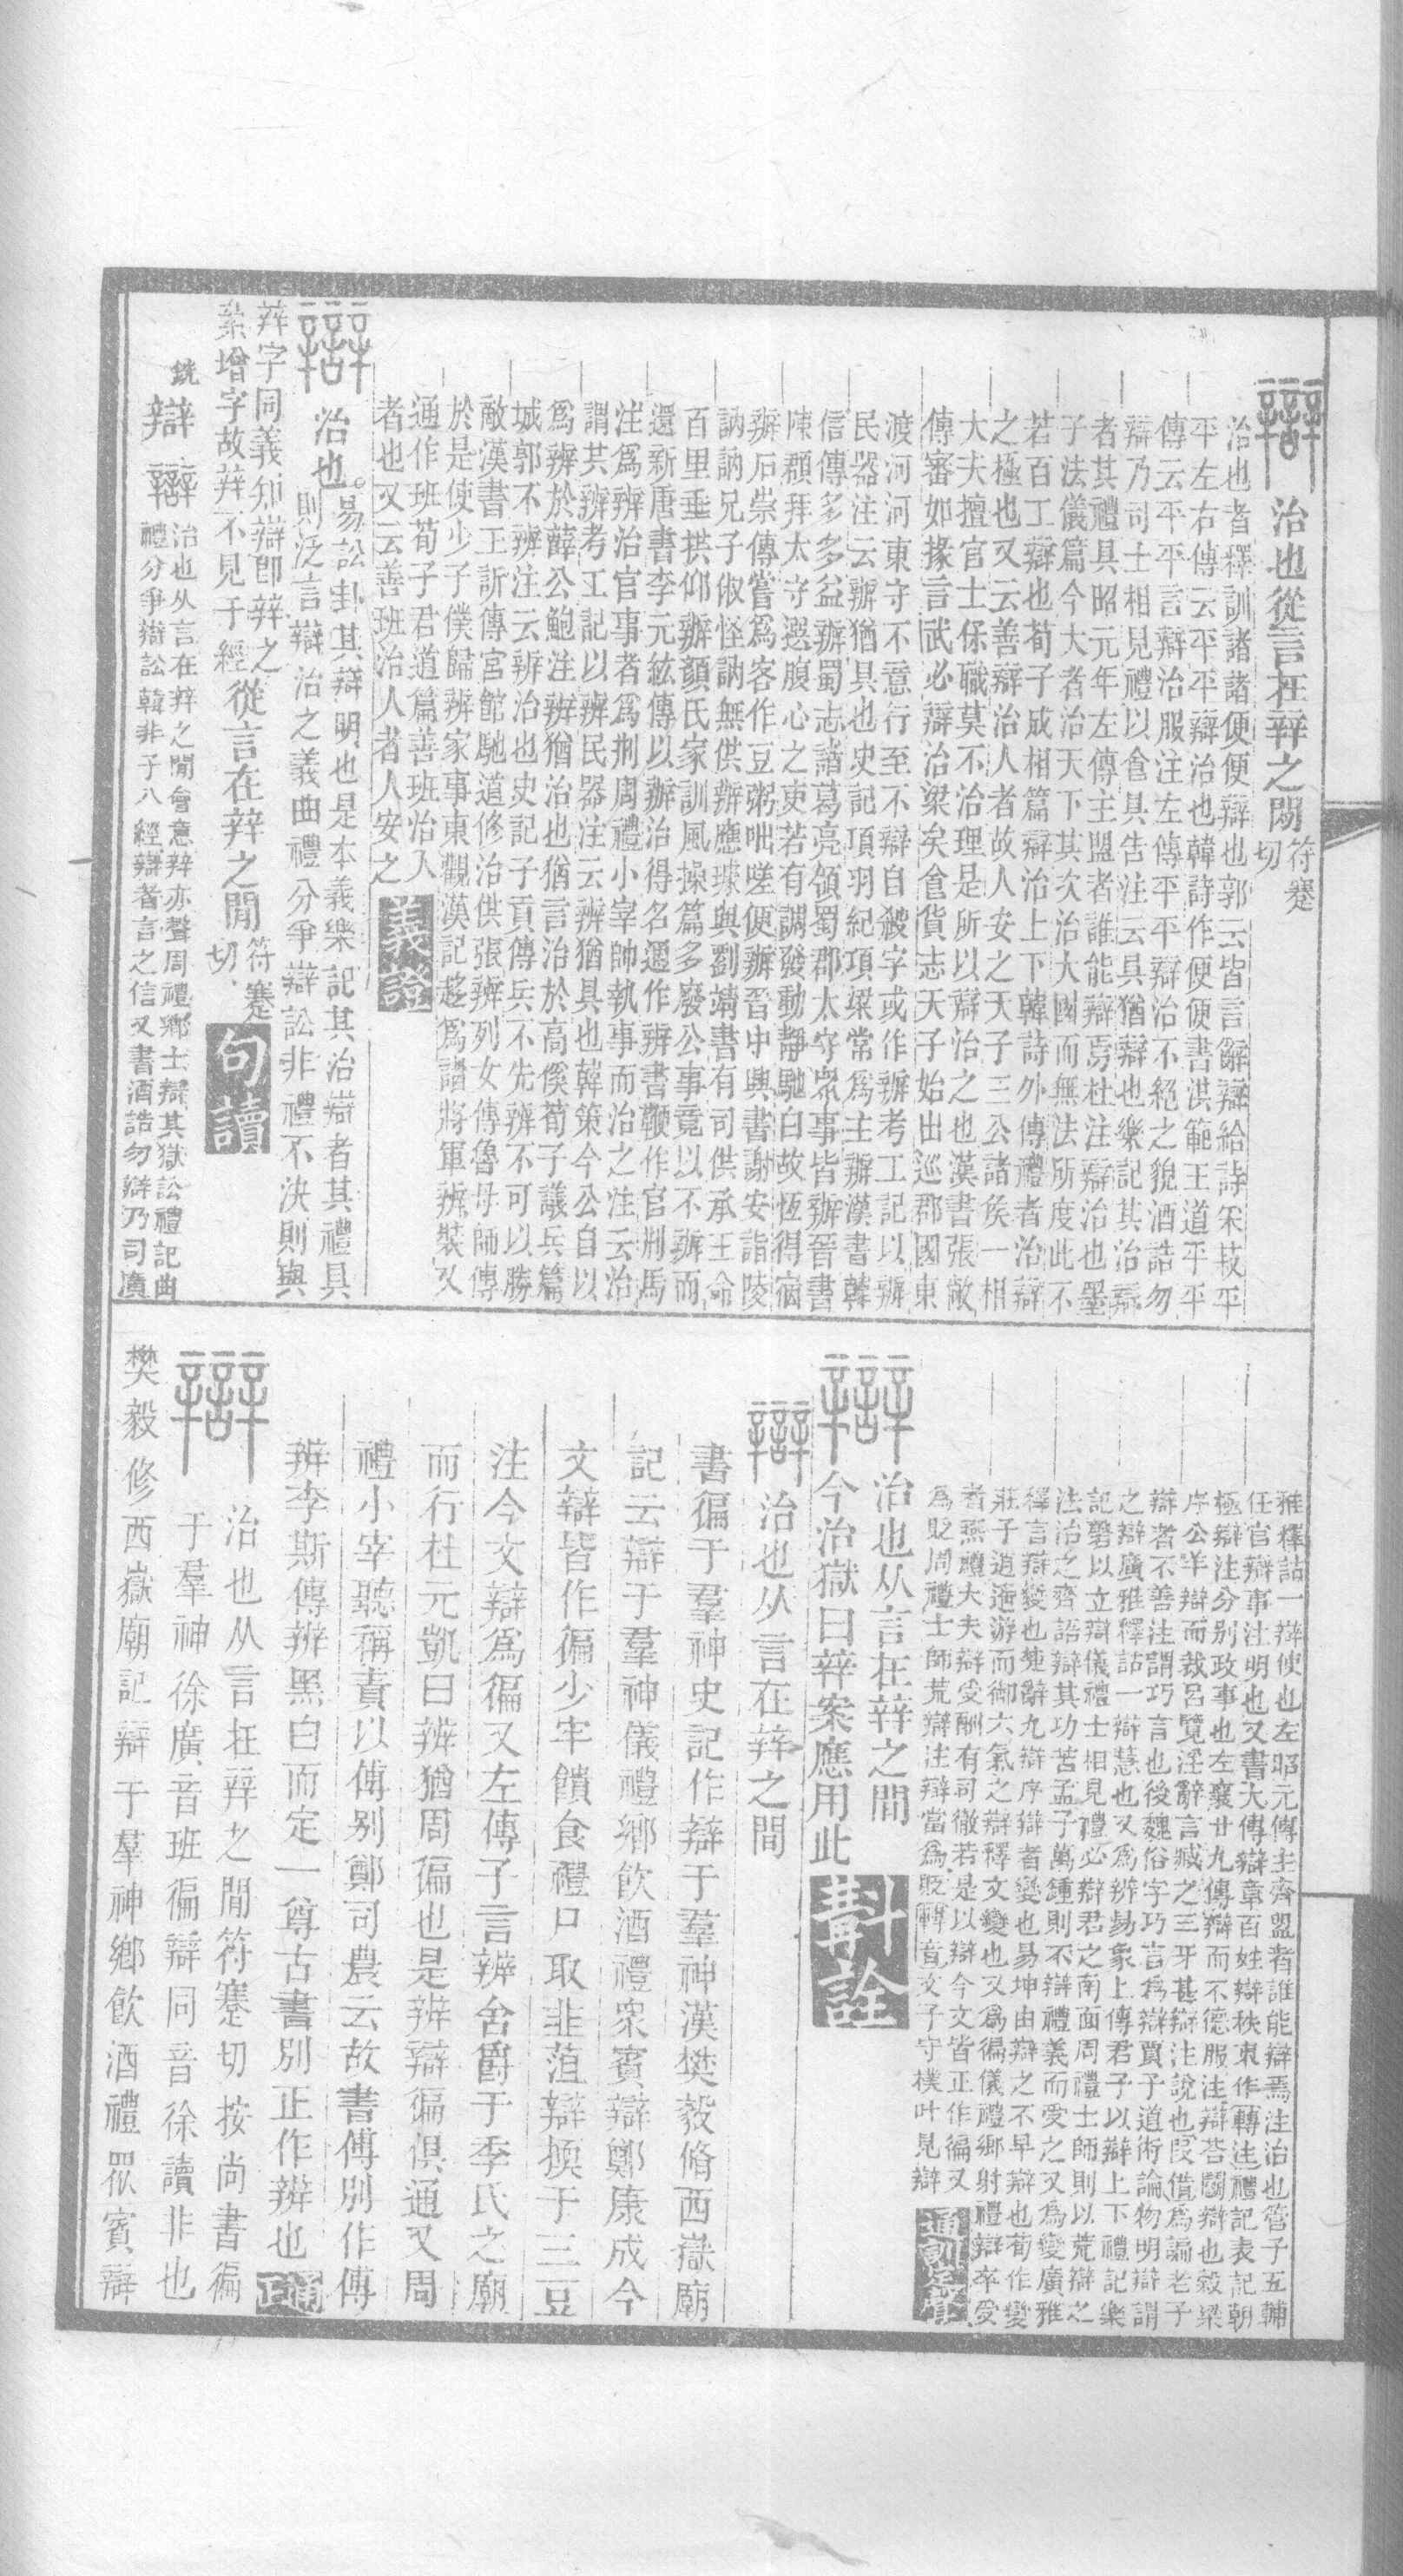 辯 治也從言在辡之閒符蹇切
治也者釋訓諸諸便便辯也郭云皆言辭辯給詩采菽平
平左右傳云平平辯治也韓詩作便便書洪範王道平平
傳云平平言辯治服注左傳平平辯治不絕之貌酒誥勿
辯乃司士相見禮以食具告注云具猶辯也樂記其治辯
者其禮具昭元年左傳主盟者誰能辯焉杜注辯治也墨
子法儀篇今大者治天下其次治大國而無法所度此不
若百工辯也荀子成相篇辯治上下韓詩外傳禮者治辯
之極也又云善辯治人者故人安之天子三公諸侯一相
大夫擅官士保職莫不治理是所以辯治之也漢書張敞
傳審如掾言武必辯治梁矣食貨志天子始出巡郡國東
渡河河東守不意行至不辯自殺字或作辦考工記以辦
民器注云辦猶具也史記項羽紀項梁常爲主辦漢書韓
信傳多多益辦蜀志諸葛亮領蜀郡太守眾事皆辦晉書
陳頵拜太守遝腹心之吏若有調發動靜馳白故恆得宿
辦石崇傳嘗爲客作豆粥咄嗟便辦晉中興書謝安詣陵
訥訥兄子俶怪訥無供辦應璩與劉靖書有司供承王命
百里垂拱仰辦顏氏家訓風操篇多廢公事竟以不辦而
還新唐書李元紘傳以辦治得名通作辨書鞭作官刑馬
注爲辨治官事者爲刑周禮小宰帥執事而治之注云治
謂共辨考工記以辨民器注云辨猶具也韓策今公自以
爲辨於薛公鮑注辨猶治也猶言治於高傒荀子議兵篇
城郭不辨注云辨治也史記子貢傳兵不先辨不可以勝
敵漢書王訢傳宮館馳道修治供張辨列女傳魯母師傳
於是使少子僕歸辨家事東觀漢記趣爲諸將軍辨裝又
通作班荀子君道篇善班治人
者也又云善班治人者人安之 義證
辯 治也。易訟卦其辯明也是本義樂記其治辯者其禮具
則泛言辯治之義曲禮分爭辯訟非禮不決則與
辡字同義知辯卽辡之
絫增字故辡不見于經 從言在辡之閒符蹇切 句讀
銑 辯 治也从言在辡之閒會意辡亦聲周禮鄉士辯其獄訟禮記曲
禮分爭辯訟韓非子八經辯者言之信又書酒誥勿辯乃司廣
雅釋詁一辯使也左昭元傳主齊盟者誰能辯焉注治也管子五輔
任官辯事注明也又書大傳辯章百姓辯秩東作轉注禮記表記朝
極辯注分別政事也左襄廿九傳辯而不德服注辯荅鬭辯也穀梁
序公羊辯而裁呂覽淫辭言臧之三牙甚辯注說也叚借爲諞老子
辯者不善注謂巧言也後魏俗字巧言爲辯賈子道術論物明辯謂
之辯廣雅釋詁一辯慧也又爲辨易象上傳君子以辯上下禮記樂
記磬以立辯儀禮士相見禮必辯君之南面周禮士師則以荒辯之
法治之齊語辯其功苦孟子萬鍾則不辯禮義而受之又爲變廣雅
釋言辯變也楚辭九辯序辯者變也易坤由辯之不早辯也荀作變
莊子逍遙游而御六氣之辯釋文變也又爲徧儀禮鄉射禮辯卒受
者燕禮大夫辯受酬有司徹若是以辯今文皆正作徧又
爲貶周禮士師荒辯注辯當爲貶轉音文子守樸叶見辯 通訓定聲
辯 治也从言在辡之間
今治獄曰辡案應用此 斠詮
辯 治也从言在辡之間
書徧于羣神史記作辯于羣神漢樊毅脩西嶽廟
記云辯于羣神儀禮鄉飲酒禮眾賓辯鄭康成今
文辯皆作徧少牢饋食禮尸取韭菹辯㨎于三豆
注今文辯爲徧又左傳子言辨舍爵于季氏之廟
而行杜元凱曰辨猶周徧也是辨辯徧俱通又周
禮小宰聽稱責以傅别鄭司農云故書傅別作傅
辨李斯傳辨黑白而定一尊古書別正作辨也 通正
辯 治也从言在辡之閒符蹇切按尚書徧
于羣神徐廣音班徧辯同音徐讀非也
樊毅修西嶽廟記辯于羣神鄉飲酒禮眾賓辯